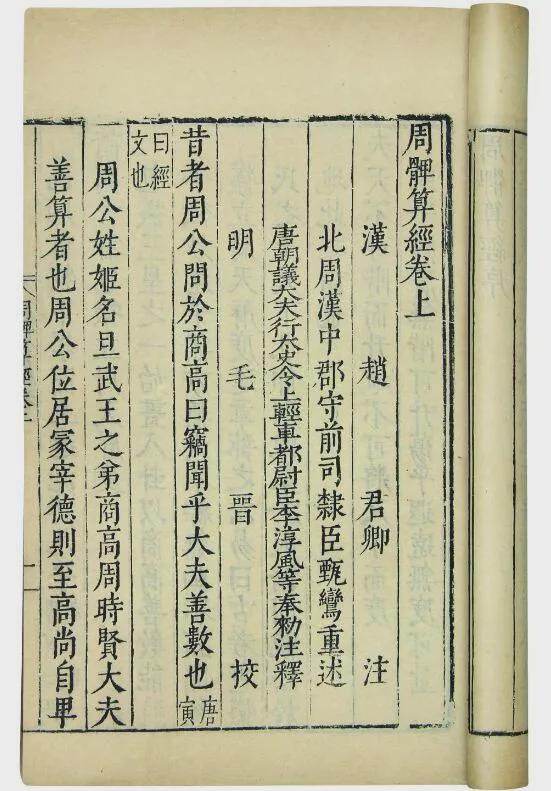 周髀算經卷上
漢 趙 君卿 注
北周漢中郡守前司隸臣甄鸞重述
唐朝議大夫行太史令上輕車都尉臣李淳風等奉勑注釋
明 毛 晉 挍
昔者周公問於商高曰竊聞乎大夫善數也唐寅
曰經文也
周公姓姬名旦武王之弟商高周時賢大夫
善算者也周公位居冢宰德則至高尚自卑
周髀算經卷上
一